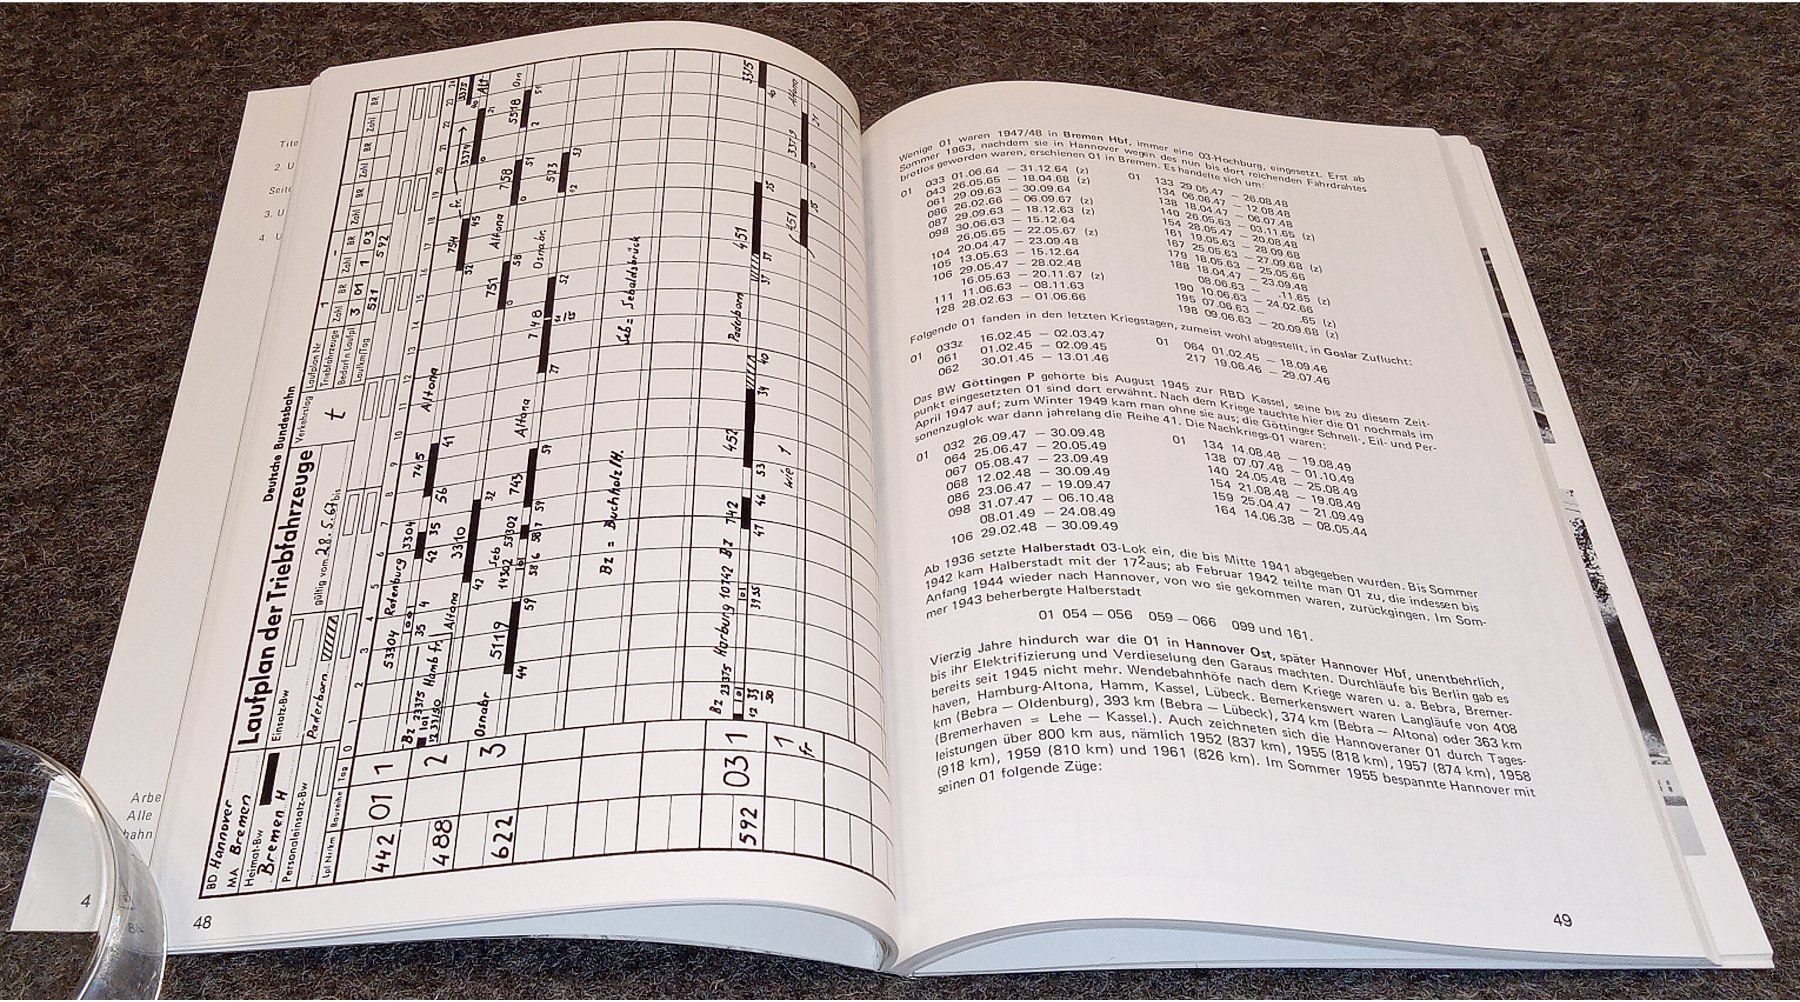 Deutsche Bundesbahn
Laufplan der Triebfahrzeuge
BD Hannover
MA Bremen
Heimat-Bw
Bremen H
Personaleinsatz-Bw
Einsatz-Bw
Paderborn
gültig vom 28.5.67 bis
Verkehrstag
t
Laufplan Nr 1
Triebfahrzeuge Zahl BR Zahl BR Zahl BR Zahl BR Zahl BR
Bedarf n Laufpl 3 01 1 03
Laufkm/Tag 521 592
Lpl Nr/km Baureihe Tag 0 1 2 3 4 5 6 7 8 9 10 11 12 13 14 15 16 17 18 19 20 21 22 23 24
442 01 1 Bz 23375 53304 Rotenburg 3304 745 Altona 754 fr. 3379 3375
488 2 Hamb fr. Altona 3310 Altona 751 Altona 758 5518 Osn
622 3 Osnabr 5119 Seb 14302 53302 743 Altona 748 Osnabr. 523
Bz = Buchholz/H. Seb = Sebaldsbrück
592 03 1 Bz 23375 Harburg 10742 Bz 742 452 Paderborn 451 3375
1 fr. wie 1 451 3379 Altona
48
4
Wenige 01 waren 1947/48 in Bremen Hbf, immer eine 03-Hochburg, eingesetzt. Erst ab
Sommer 1963, nachdem sie in Hannover wegen des nun bis dort reichenden Fahrdrahtes
brotlos geworden waren, erschienen 01 in Bremen. Es handelte sich um:
01 033 01.06.64 – 31.12.64 (z)
043 26.05.65 – 18.04.68 (z)
061 29.09.63 – 30.09.64
086 26.02.66 – 06.09.67 (z)
087 29.09.63 – 18.12.63 (z)
098 30.06.63 – 15.12.64
26.05.65 – 22.05.67 (z)
104 20.04.47 – 23.09.48
105 13.05.63 – 15.12.64
106 29.05.47 – 28.02.48
16.05.63 – 20.11.67 (z)
111 11.06.63 – 08.11.63
128 28.02.63 – 01.06.66
01 133 29.05.47 – 26.08.48
134 06.06.47 – 12.08.48
138 18.04.47 – 06.07.48
140 26.05.63 – 03.11.65 (z)
154 28.05.47 – 20.08.48
161 19.05.63 – 28.09.68
167 25.05.63 – 27.09.68 (z)
179 18.05.63 – 25.05.66
188 18.04.47 – 23.09.48
08.06.63 – .11.65 (z)
190 10.06.63 – 24.02.66
195 07.06.63 – .65 (z)
198 09.06.63 – 20.09.68 (z)
Folgende 01 fanden in den letzten Kriegstagen, zumeist wohl abgestellt, in Goslar Zuflucht:
01 033z 16.02.45 – 02.03.47
061 01.02.45 – 02.09.45
062 30.01.45 – 13.01.46
01 064 01.02.45 – 18.09.46
217 19.06.46 – 29.07.46
Das BW Göttingen P gehörte bis August 1945 zur RBD Kassel, seine bis zu diesem Zeit-
punkt eingesetzten 01 sind dort erwähnt. Nach dem Kriege tauchte hier die 01 nochmals im
April 1947 auf; zum Winter 1949 kam man ohne sie aus; die Göttinger Schnell-, Eil- und Per-
sonenzuglok war dann jahrelang die Reihe 41. Die Nachkriegs-01 waren:
01 032 26.09.47 – 30.09.48
064 25.06.47 – 20.05.49
067 05.08.47 – 23.09.49
068 12.02.48 – 30.09.49
086 23.06.47 – 19.09.47
098 31.07.47 – 06.10.48
08.01.49 – 24.08.49
106 29.02.48 – 30.09.49
01 134 14.08.48 – 19.08.49
138 07.07.48 – 01.10.49
140 24.05.48 – 25.08.49
154 21.08.48 – 19.08.49
159 25.04.47 – 21.09.49
164 14.06.38 – 08.05.44
Ab 1936 setzte Halberstadt 03-Lok ein, die bis Mitte 1941 abgegeben wurden. Bis Sommer
1942 kam Halberstadt mit der 17²aus; ab Februar 1942 teilte man 01 zu, die indessen bis
Anfang 1944 wieder nach Hannover, von wo sie gekommen waren, zurückgingen. Im Som-
mer 1943 beherbergte Halberstadt
01 054 – 056 059 – 066 099 und 161.
Vierzig Jahre hindurch war die 01 in Hannover Ost, später Hannover Hbf, unentbehrlich,
bis ihr Elektrifizierung und Verdieselung den Garaus machten. Durchläufe bis Berlin gab es
bereits seit 1945 nicht mehr. Wendebahnhöfe nach dem Kriege waren u. a. Bebra, Bremer-
haven, Hamburg-Altona, Hamm, Kassel, Lübeck. Bemerkenswert waren Langläufe von 408
km (Bebra – Oldenburg), 393 km (Bebra – Lübeck), 374 km (Bebra – Altona) oder 363 km
(Bremerhaven = Lehe – Kassel.). Auch zeichneten sich die Hannoveraner 01 durch Tages-
leistungen über 800 km aus, nämlich 1952 (837 km), 1955 (818 km), 1957 (874 km), 1958
(918 km), 1959 (810 km) und 1961 (826 km). Im Sommer 1955 bespannte Hannover mit
seinen 01 folgende Züge:
49